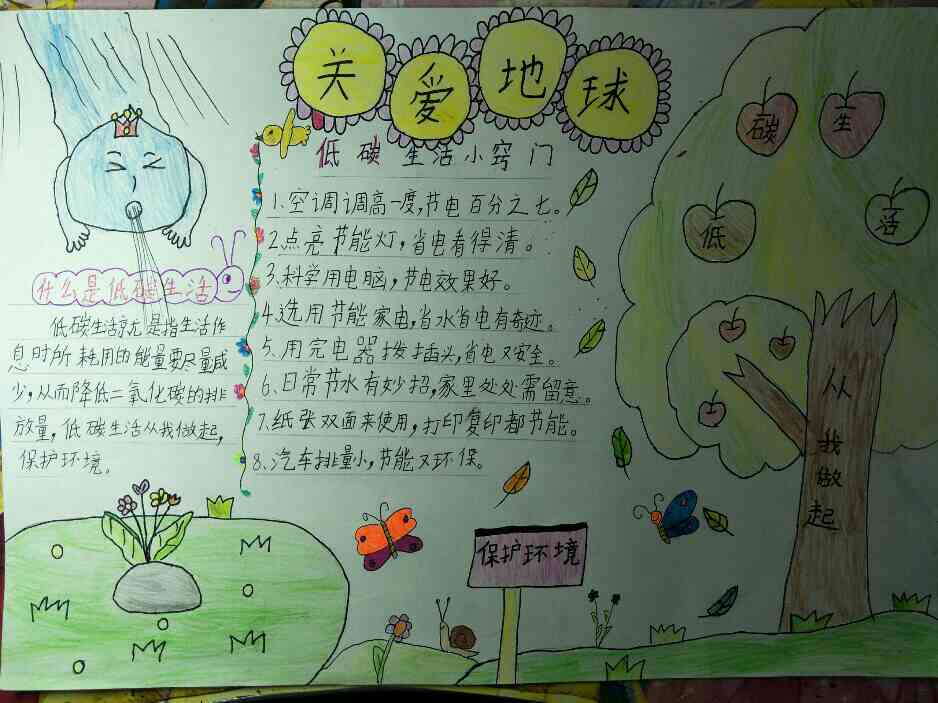 关爱地球
低碳生活小窍门
1.空调调高一度,节电百分之七。
2点亮节能灯,省电看得清。
3.科学用电脑,节电效果好。
4.选用节能家电,省水省电有奇迹。
5、用完电器拨插头,省电又安全。
6、日常节水有妙招,家里处处需留意。
7、纸张双面来使用,打印复印都节能。
8、汽车排量小,节能又环保。
什么是低碳生活
低碳生活就是指生活作
息时所耗用的能量要尽量减
少,从而降低二氧化碳的排
放量,低碳生活从我做起,
保护环境。
低碳生活
从我做起
保护环境